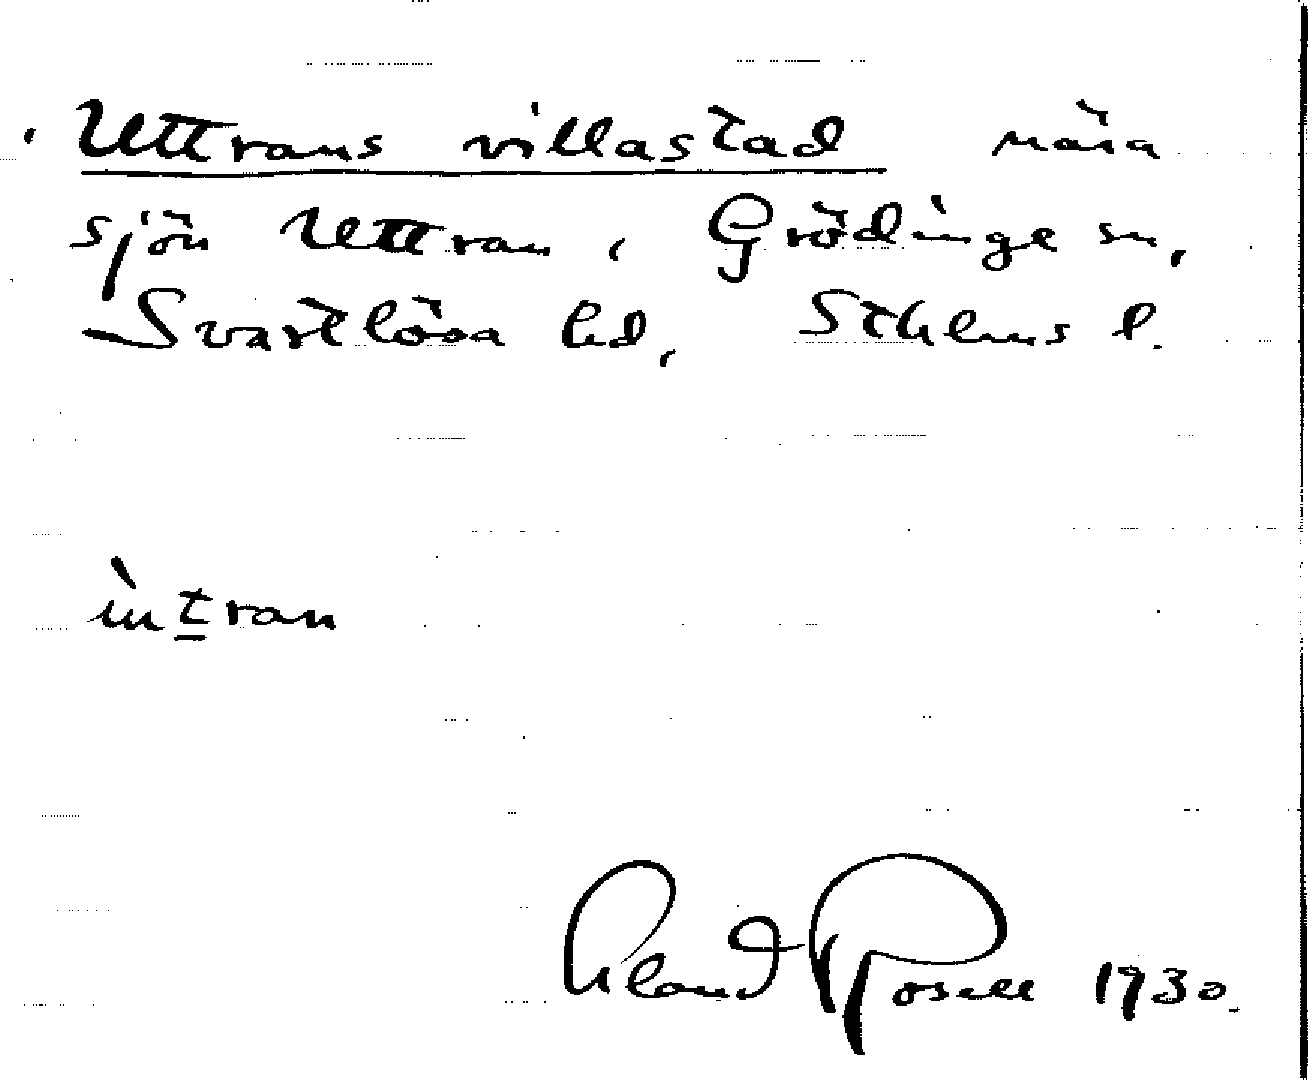 Uttrans villastad nära
sjön Uttran, Grödinge sn,
Svartlösa hd, Sthlms l.
ùtran
Erland Rosell 1930.